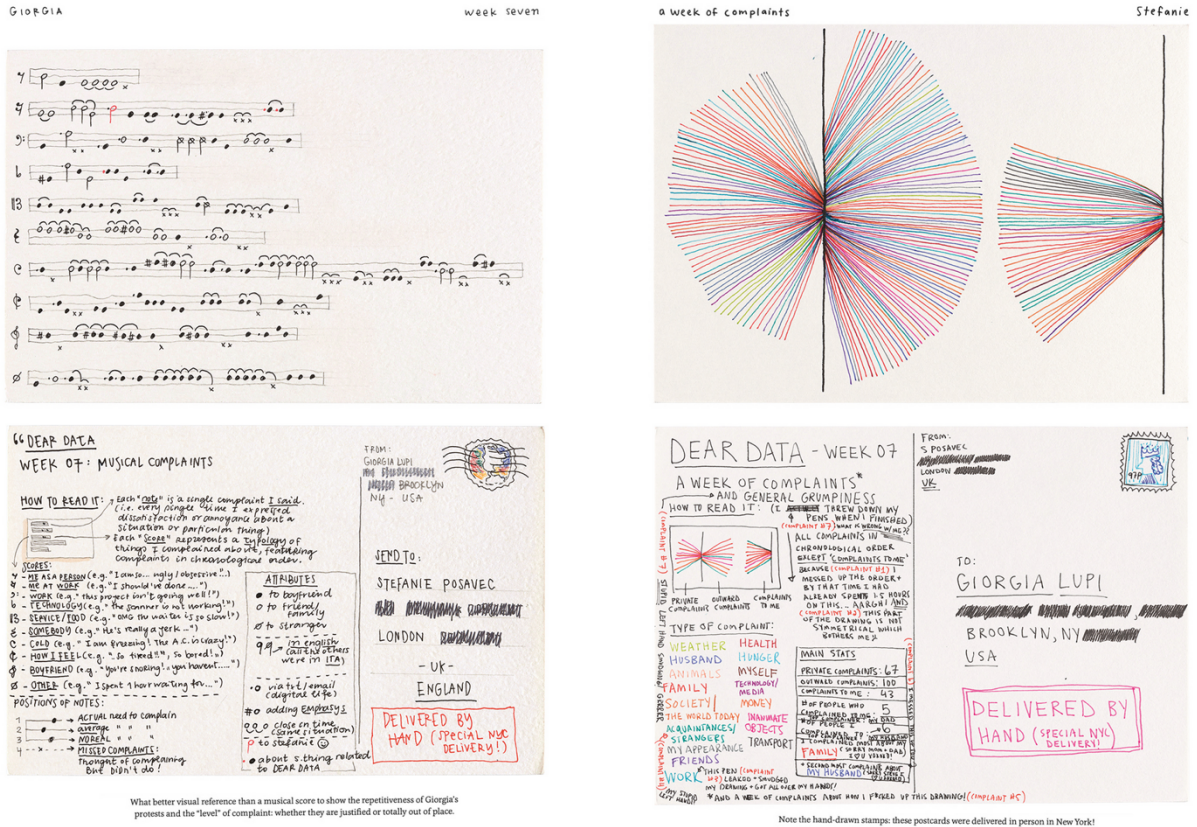 GIORGIA
week seven
a week of complaints
Stefanie
DEAR DATA
WEEK 07: MUSICAL COMPLAINTS
HOW TO READ IT:
Each "note" is a single complaint I said.
(i.e. every single time I expressed
dissatisfaction or annoyance about a
situation or particular thing)
Each "SCORE" represents a typology of
things I complained about, featuring
complaints in chronological order.
SCORES:
ME AS A PERSON (e.g. "I am so... ugly/obsessive...")
ME AT WORK (e.g. "I should've done....")
WORK (e.g. "this project isn't going well!")
TECHNOLOGY (e.g. "the scanner is not working!")
SERVICE/FOOD (e.g. "OMG the waiter is so slow!")
SOMEBODY (e.g. "He's really a jerk...")
COLD (e.g. "I am freezing! The A.C. is crazy!")
HOW I FEEL (e.g. "so tired!!", so bored!")
BOYFRIEND (e.g. "you're snoring! you haven't....")
OTHER (e.g. "I spent 1 hour waiting for...")
POSITIONS OF NOTES:
1 ACTUAL need to complain
2 average " "
3 NOREAL " "
4 MISSED COMPLAINTS:
Thought of complaining
But Didn't do!
ATTRIBUTES
to boyfriend
to friend/
family
to stranger
in english
(all the others
were in ITA)
via txt/email
(digital life)
adding EMPHASYS
close on time
(same situation)
to stefanie
about s.thing related
to DEAR DATA
FROM:
GIORGIA LUPI
BROOKLYN
NY - USA
SEND TO:
STEFANIE POSAVEC
LONDON
- UK -
ENGLAND
DELIVERED BY
HAND (SPECIAL NYC
DELIVERY!)
What better visual reference than a musical score to show the repetitiveness of Giorgia's
protests and the "level" of complaint: whether they are justified or totally out of place.
DEAR DATA - WEEK 07
A WEEK OF COMPLAINTS*
AND GENERAL GRUMPINESS
HOW TO READ IT:
(I THREW DOWN MY
4 PENS WHEN I FINISHED)
(COMPLAINT #7) WHAT IS WRONG W/ME?!
ALL COMPLAINTS IN
CHRONOLOGICAL ORDER
EXCEPT 'COMPLAINTS TO ME'
BECAUSE (COMPLAINT #1) I
MESSED UP THE ORDER +
BY THAT TIME I HAD
ALREADY SPENT 1.5 HOURS
ON THIS... AARGH! AND
(COMPLAINT #2) THIS PART
OF THE DRAWING IS NOT
SYMMETRICAL WHICH
BOTHERS ME
PRIVATE COMPLAINTS
OUTWARD COMPLAINTS
COMPLAINTS TO ME
TYPE OF COMPLAINT:
WEATHER
HUSBAND
ANIMALS
FAMILY
SOCIETY/
THE WORLD TODAY
ACQUAINTANCES/
STRANGERS
MY APPEARANCE
FRIENDS
WORK
HEALTH
HUNGER
MYSELF
TECHNOLOGY/
MEDIA
MONEY
INANIMATE
OBJECTS
TRANSPORT
MAIN STATS
PRIVATE COMPLAINTS: 67
OUTWARD COMPLAINTS: 100
COMPLAINTS TO ME: 43
# OF PEOPLE WHO
COMPLAINED TO ME: 5
# OF PEOPLE I
COMPLAINED TO: 6
I COMPLAINED MOST ABOUT MY
FAMILY (SORRY MOM + DAD)
* SECOND MOST COMPLAINTS ABOUT
MY HUSBAND
THIS PEN (COMPLAINT
LEAKED + SMUDGED
MY DRAWING + GOT ALL OVER MY HANDS!
MY STUPID
LEFT HAND!!
* AND A WEEK OF COMPLAINTS ABOUT HOW I F*CKED UP THIS DRAWING! (COMPLAINT #5)
FROM:
S POSAVEC
LONDON
UK
97P
TO:
GIORGIA LUPI
BROOKLYN, NY
USA
DELIVERED BY
HAND (SPECIAL NYC
DELIVERY!)
Note the hand-drawn stamps: these postcards were delivered in person in New York!